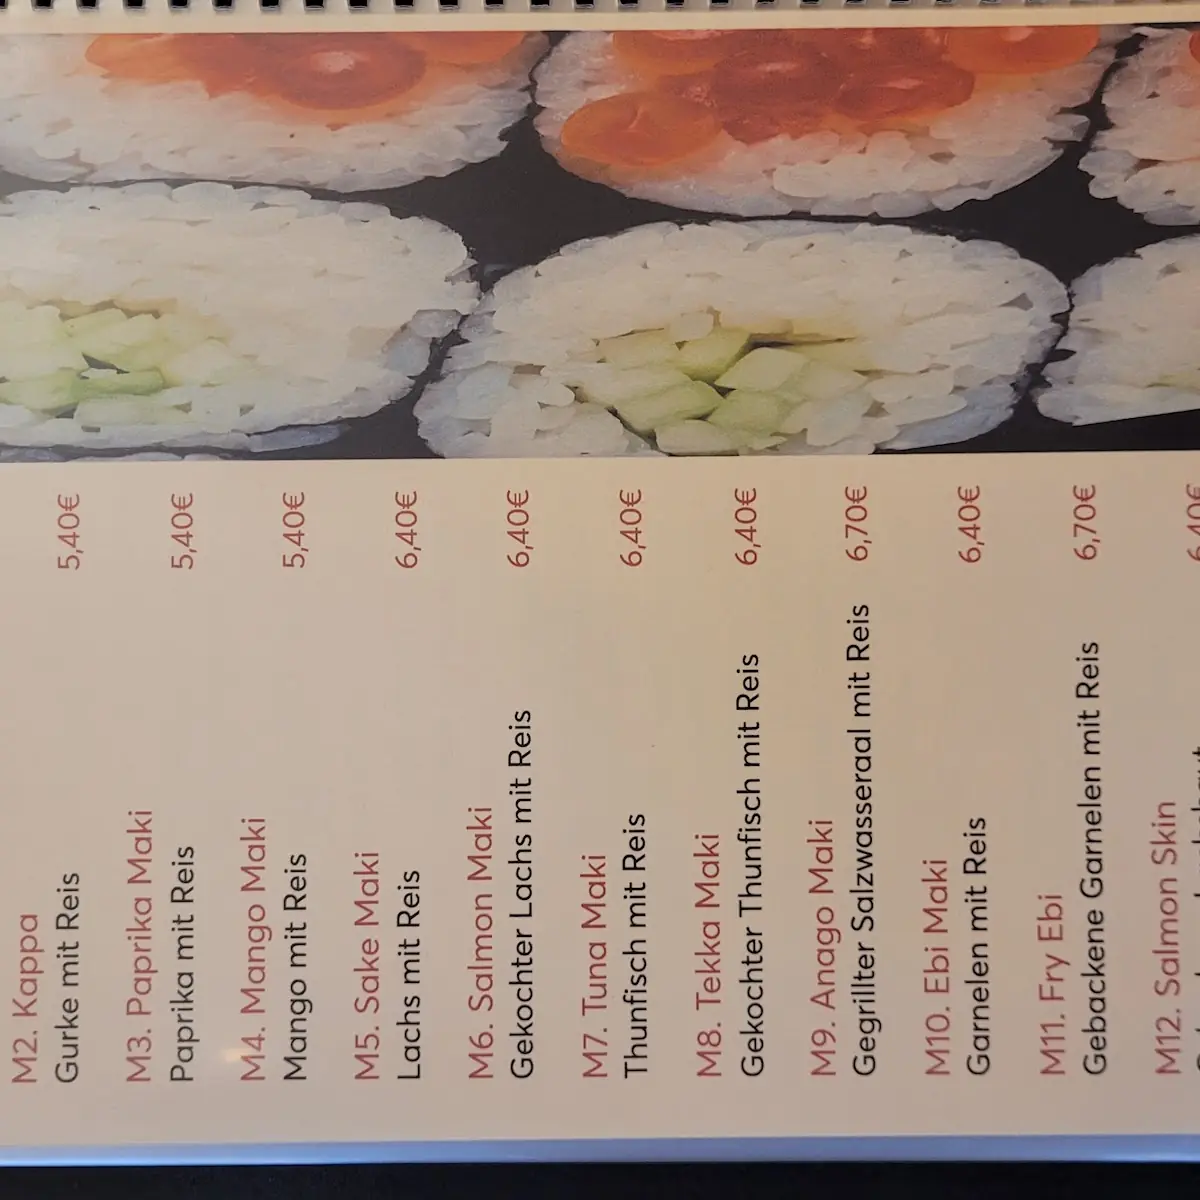 M2. Kappa
Gurke mit Reis 5,40€
M3. Paprika Maki
Paprika mit Reis 5,40€
M4. Mango Maki
Mango mit Reis 5,40€
M5. Sake Maki
Lachs mit Reis 6,40€
M6. Salmon Maki
Gekochter Lachs mit Reis 6,40€
M7. Tuna Maki
Thunfisch mit Reis 6,40€
M8. Tekka Maki
Gekochter Thunfisch mit Reis 6,40€
M9. Anago Maki
Gegrillter Salzwasseraal mit Reis 6,70€
M10. Ebi Maki
Garnelen mit Reis 6,40€
M11. Fry Ebi
Gebackene Garnelen mit Reis 6,70€
M12. Salmon Skin
6,40€